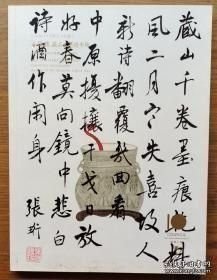 藏山千卷墨痕
風二月寒失喜故人
新诗翻覆幾回看
中原擾攘干戈日放
好春莫向鏡中悲白
诗酒作闲身
張珩